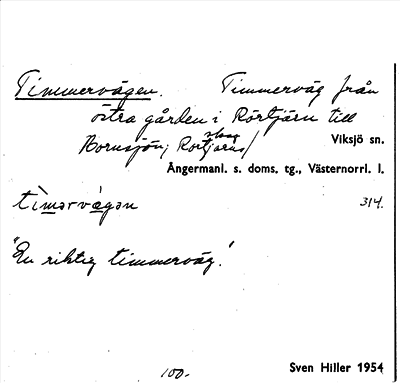 Timmervägen. Timmerväg från
östra gården i Rörtjärn till
Bornsjön; Rörtjärns/skog
Viksjö sn.
Ångermanl. s. doms. tg., Västernorrl. l.
timərvægən 314.
"En riktig timmerväg."
100.
Sven Hiller 1954